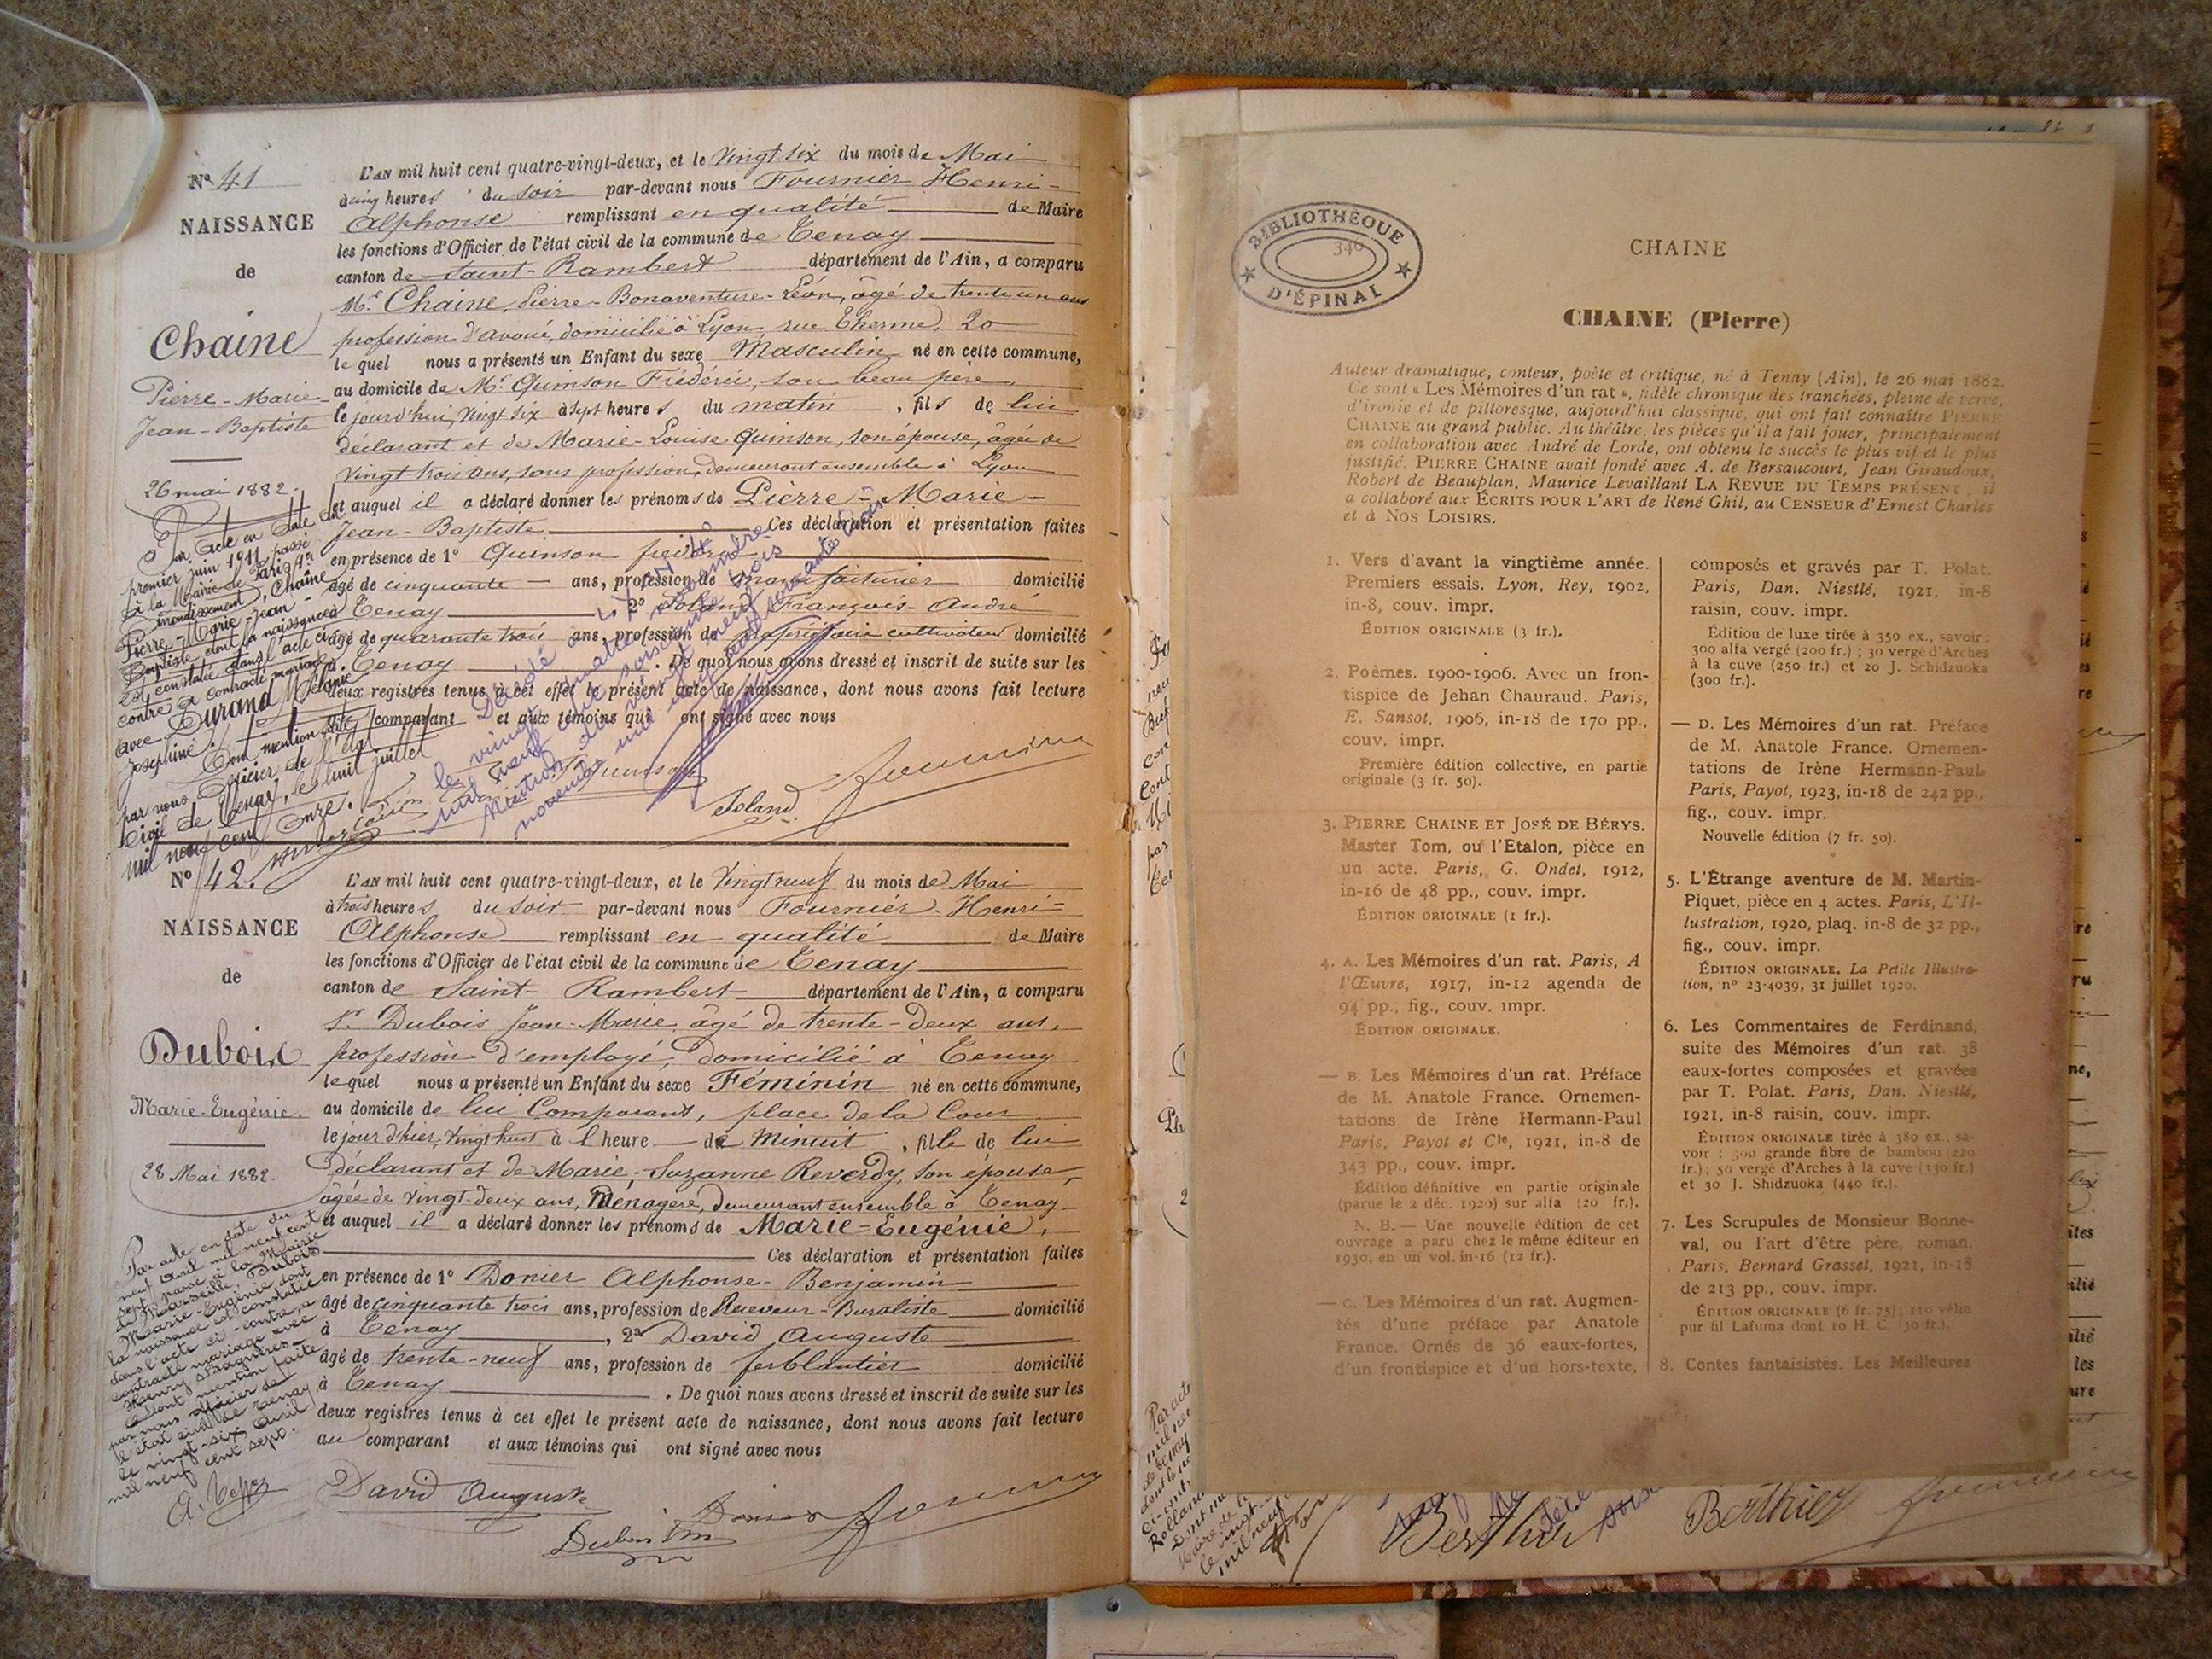 Nº 41
NAISSANCE
de
Chaine
Pierre-Marie-
Jean-Baptiste
26 mai 1882.
L'AN mil huit cent quatre-vingt-deux, et le vingt six du mois de Mai
à cinq heures du soir par-devant nous Fournier Henri-
Alphonse remplissant en qualité de Maire
les fonctions d'Officier de l'état civil de la commune de Tenay
canton de Saint-Rambert département de l'Ain, a comparu
Mr. Chaine, Pierre-Bonaventure-Léon, âgé de trente un ans
profession d'avoué, domicilié à Lyon, rue Therme, 20
le quel nous a présenté un Enfant du sexe Masculin né en cette commune,
au domicile de Mr Quinson Frédéric, son beau père
le jourd'hui, vingt six à sept heures du matin, fils de lui
déclarant et de Marie-Louise Quinson, son épouse, âgée de
vingt trois ans, sans profession, demeurant ensemble à Lyon
et auquel il a déclaré donner les prénoms de Pierre-Marie-
Jean-Baptiste. Ces déclaration et présentation faites
en présence de 1º Quinson frédéric
âgé de cinquante ans, profession de manufacturier domicilié
à Tenay 2º Soland François-André
âgé de quarante trois ans, profession de propriétaire cultivateur domicilié
à Tenay. De quoi nous avons dressé et inscrit de suite sur les
deux registres tenus à cet effet le présent acte de naissance, dont nous avons fait lecture
comparant et aux témoins qui ont signé avec nous
Par acte en date du
premier juin 1911 passé
à la Mairie de Paris 1er
arrondissement, Chaine
Pierre-Marie-Jean-
Baptiste dont la naissance
est constatée dans l'acte ci-
contre a contracté mariage
avec Durand Mélanie
Joséphine.
Dont mention faite
par nous officier de l'état
Civil de Tenay, le huit juillet
mil neuf cent onze.
Décédé à
le vingt quatre
mil neuf cent soixante trois
Mention du vingt neuf
novembre mil neuf cent soixante trois
Quinson
Soland
Fournier
Nº 42.
NAISSANCE
de
Dubois
Marie-Eugénie.
28 Mai 1882.
L'AN mil huit cent quatre-vingt-deux, et le vingt neuf du mois de Mai
à trois heures du soir par-devant nous Fournier Henri-
Alphonse remplissant en qualité de Maire
les fonctions d'Officier de l'état civil de la commune de Tenay
canton de Saint-Rambert département de l'Ain, a comparu
Sr. Dubois Jean-Marie âgé de trente-deux ans,
profession d'employé, domicilié à Tenay
le quel nous a présenté un Enfant du sexe Féminin né en cette commune,
au domicile de lui Comparant, place de la Cour
le jour d'hier, vingt huit à l heure de Minuit, fille de lui
déclarant et de Marie-Suzanne Reverdy, son épouse,
âgée de vingt-deux ans, Ménagère, demeurant ensemble à Tenay
et auquel il a déclaré donner les prénoms de Marie-Eugénie,
Ces déclaration et présentation faites
en présence de 1º Donier Alphonse-Benjamin
âgé de cinquante trois ans, profession de Receveur-Buraliste domicilié
à Tenay, 2º David Auguste
âgé de trente-neuf ans, profession de ferblantier domicilié
à Tenay. De quoi nous avons dressé et inscrit de suite sur les
deux registres tenus à cet effet le présent acte de naissance, dont nous avons fait lecture
au comparant et aux témoins qui ont signé avec nous
Par acte en date du
neuf avril mil neuf cent
sept, passé à la Mairie
de Marseille, Dubois
Marie-Eugénie dont
la naissance est constatée
dans l'acte ci-contre, a
contracté mariage avec
Henry
Dont mention faite
par nous officier de
l'état civil de Tenay
le vingt-six avril
mil neuf cent sept.
David Auguste
Donier
Fournier
BIBLIOTHEQUE
D'ÉPINAL
346
CHAINE
CHAINE (Pierre)
Auteur dramatique, conteur, poète et critique, né à Tenay (Ain), le 26 mai 1882.
Ce sont « Les Mémoires d'un rat », fidèle chronique des tranchées, pleine de verve,
d'ironie et de pittoresque, aujourd'hui classique, qui ont fait connaître PIERRE
CHAINE au grand public. Au théâtre, les pièces qu'il a fait jouer, principalement
en collaboration avec André de Lorde, ont obtenu le succès le plus vif et le plus
justifié. PIERRE CHAINE avait fondé avec A. de Bersaucourt, Jean Giraudoux,
Robert de Beauplan, Maurice Levaillant LA REVUE DU TEMPS PRÉSENT ; il
a collaboré aux ÉCRITS POUR L'ART de René Ghil, au CENSEUR d'Ernest Charles
et à NOS LOISIRS.
1. Vers d'avant la vingtième année.
Premiers essais. Lyon, Rey, 1902,
in-8, couv. impr.
ÉDITION ORIGINALE (3 fr.).
2. Poèmes. 1900-1906. Avec un fron-
tispice de Jehan Chauraud. Paris,
E. Sansot, 1906, in-18 de 170 pp.,
couv. impr.
Première édition collective, en partie
originale (3 fr. 50).
3. PIERRE CHAINE ET JOSÉ DE BÉRYS.
Master Tom, ou l'Etalon, pièce en
un acte. Paris, G. Ondet, 1912,
in-16 de 48 pp., couv. impr.
ÉDITION ORIGINALE (1 fr.).
4. A. Les Mémoires d'un rat. Paris, A
l'Œuvre, 1917, in-12 agenda de
94 pp., fig., couv. impr.
ÉDITION ORIGINALE.
— B. Les Mémoires d'un rat. Préface
de M. Anatole France. Ornemen-
tations de Irène Hermann-Paul
Paris, Payot et Cie, 1921, in-8 de
343 pp., couv. impr.
Édition définitive en partie originale
(parue le 2 déc. 1920) sur alfa (20 fr.).
N. B. — Une nouvelle édition de cet
ouvrage a paru chez le même éditeur en
1930, en un vol. in-16 (12 fr.).
— C. Les Mémoires d'un rat. Augmen-
tés d'une préface par Anatole
France. Ornés de 36 eaux-fortes,
d'un frontispice et d'un hors-texte,
composés et gravés par T. Polat.
Paris, Dan. Niestlé, 1921, in-8
raisin, couv. impr.
Édition de luxe tirée à 350 ex., savoir :
300 alfa vergé (200 fr.) ; 30 vergé d'Arches
à la cuve (250 fr.) et 20 J. Schidzuoka
(300 fr.).
— D. Les Mémoires d'un rat. Préface
de M. Anatole France. Ornemen-
tations de Irène Hermann-Paul.
Paris, Payot, 1923, in-18 de 242 pp.,
fig., couv. impr.
Nouvelle édition (7 fr. 50).
5. L'Étrange aventure de M. Martin-
Piquet, pièce en 4 actes. Paris, L'Il-
lustration, 1920, plaq. in-8 de 32 pp.,
fig., couv. impr.
ÉDITION ORIGINALE. La Petite Illustra-
tion, nº 23-4039, 31 juillet 1920.
6. Les Commentaires de Ferdinand,
suite des Mémoires d'un rat. 38
eaux-fortes composées et gravées
par T. Polat. Paris, Dan. Niestlé,
1921, in-8 raisin, couv. impr.
ÉDITION ORIGINALE tirée à 380 ex., sa-
voir : 300 grande fibre de bambou (220
fr.) ; 50 vergé d'Arches à la cuve (330 fr.)
et 30 J. Shidzuoka (440 fr.).
7. Les Scrupules de Monsieur Bonne-
val, ou l'art d'être père, roman.
Paris, Bernard Grasset, 1921, in-18
de 213 pp., couv. impr.
ÉDITION ORIGINALE (6 fr. 75) ; 110 vélin
pur fil Lafuma dont 10 H. C. (30 fr.).
8. Contes fantaisistes. Les Meilleures
Berthier
Berthier